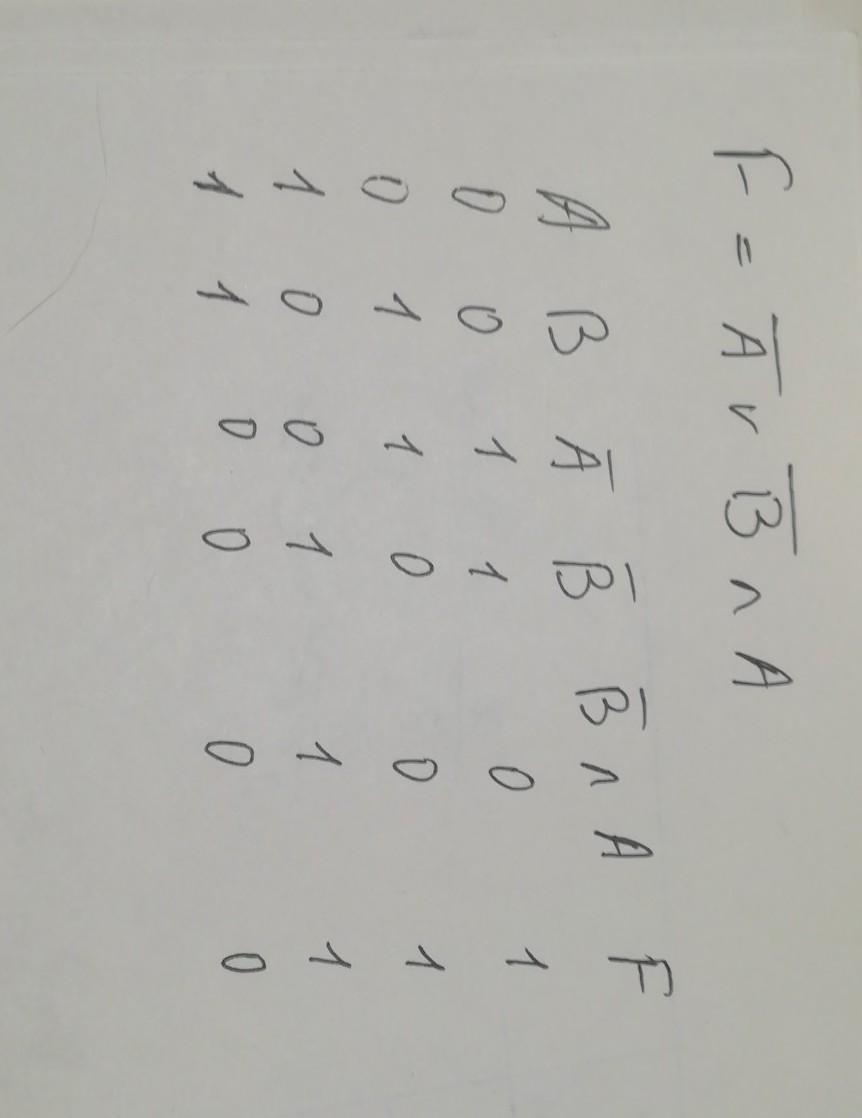 F = A̅ v B̅ ∧ A
A B A̅ B̅ B̅ ∧ A F
0 0 1 1 0 1
0 1 1 0 0 1
1 0 0 1 1 1
1 1 0 0 0 0